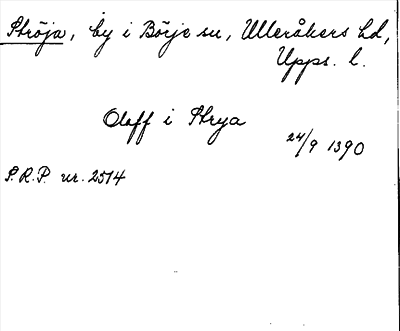 Ströja, by i Börje sn, Ulleråkers hd,
Upps. l.
Oloff i Strya
24/9 1390
S.R.P. nr. 2514